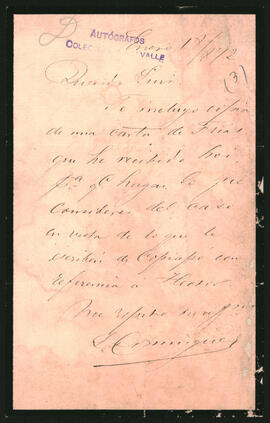 D
AUTÓGRAFOS
COLEC VALLE
Enero 12/
(3)
Querido Luis
Te incluyo copia
de una carta de Frias
que he recibido hoi
pª qe hagas lo que
consideres del caso
en vista de lo que la
escriban de Copiapo con
referencia á
Me repito
L. Dominguez